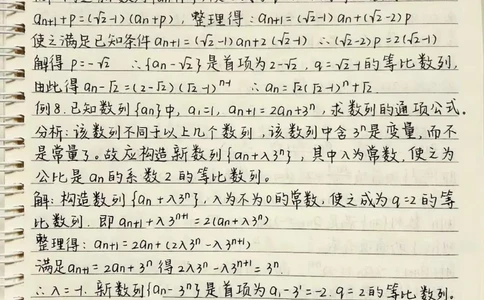 an+1+p=(√2-1)(an+p), 整理得: an+1=(√2-1)an+(√2-2)p
使之满足已知条件 an+1=(√2-1)an+2(√2-1) ∴(√2-2)p=2(√2-1)
解得 p=-√2 ∴{an-√2}是首项为2-√2, q=√2-1的等比数列,
由此得 an-√2=(2-√2)(√2-1)ⁿ⁻¹ ∴an=√2(√2-1)ⁿ+√2.
例8.已知数列{an}中, a₁=1, an+1=2an+3ⁿ, 求数列的通项公式。
分析:该数列不同于以上几个数列,该数列中含3ⁿ是变量,而不
是常量了。故应构造新数列{an+λ3ⁿ},其中λ为常数,使之为
公比是an的系数2的等比数列。
解:构造数列{an+λ3ⁿ},λ为不为0的常数,使之成为q=2的等
比数列. 即 an+1+λ3ⁿ⁺¹=2(an+λ3ⁿ)
整理得: an+1=2an+(2λ3ⁿ-λ3ⁿ⁺¹)
满足an+1=2an+3ⁿ 得 2λ3ⁿ-λ3ⁿ⁺¹=3ⁿ.
∴λ=-1. 新数列{an-3ⁿ}是首项为a₁-3¹=-2. q=2的等比数列。